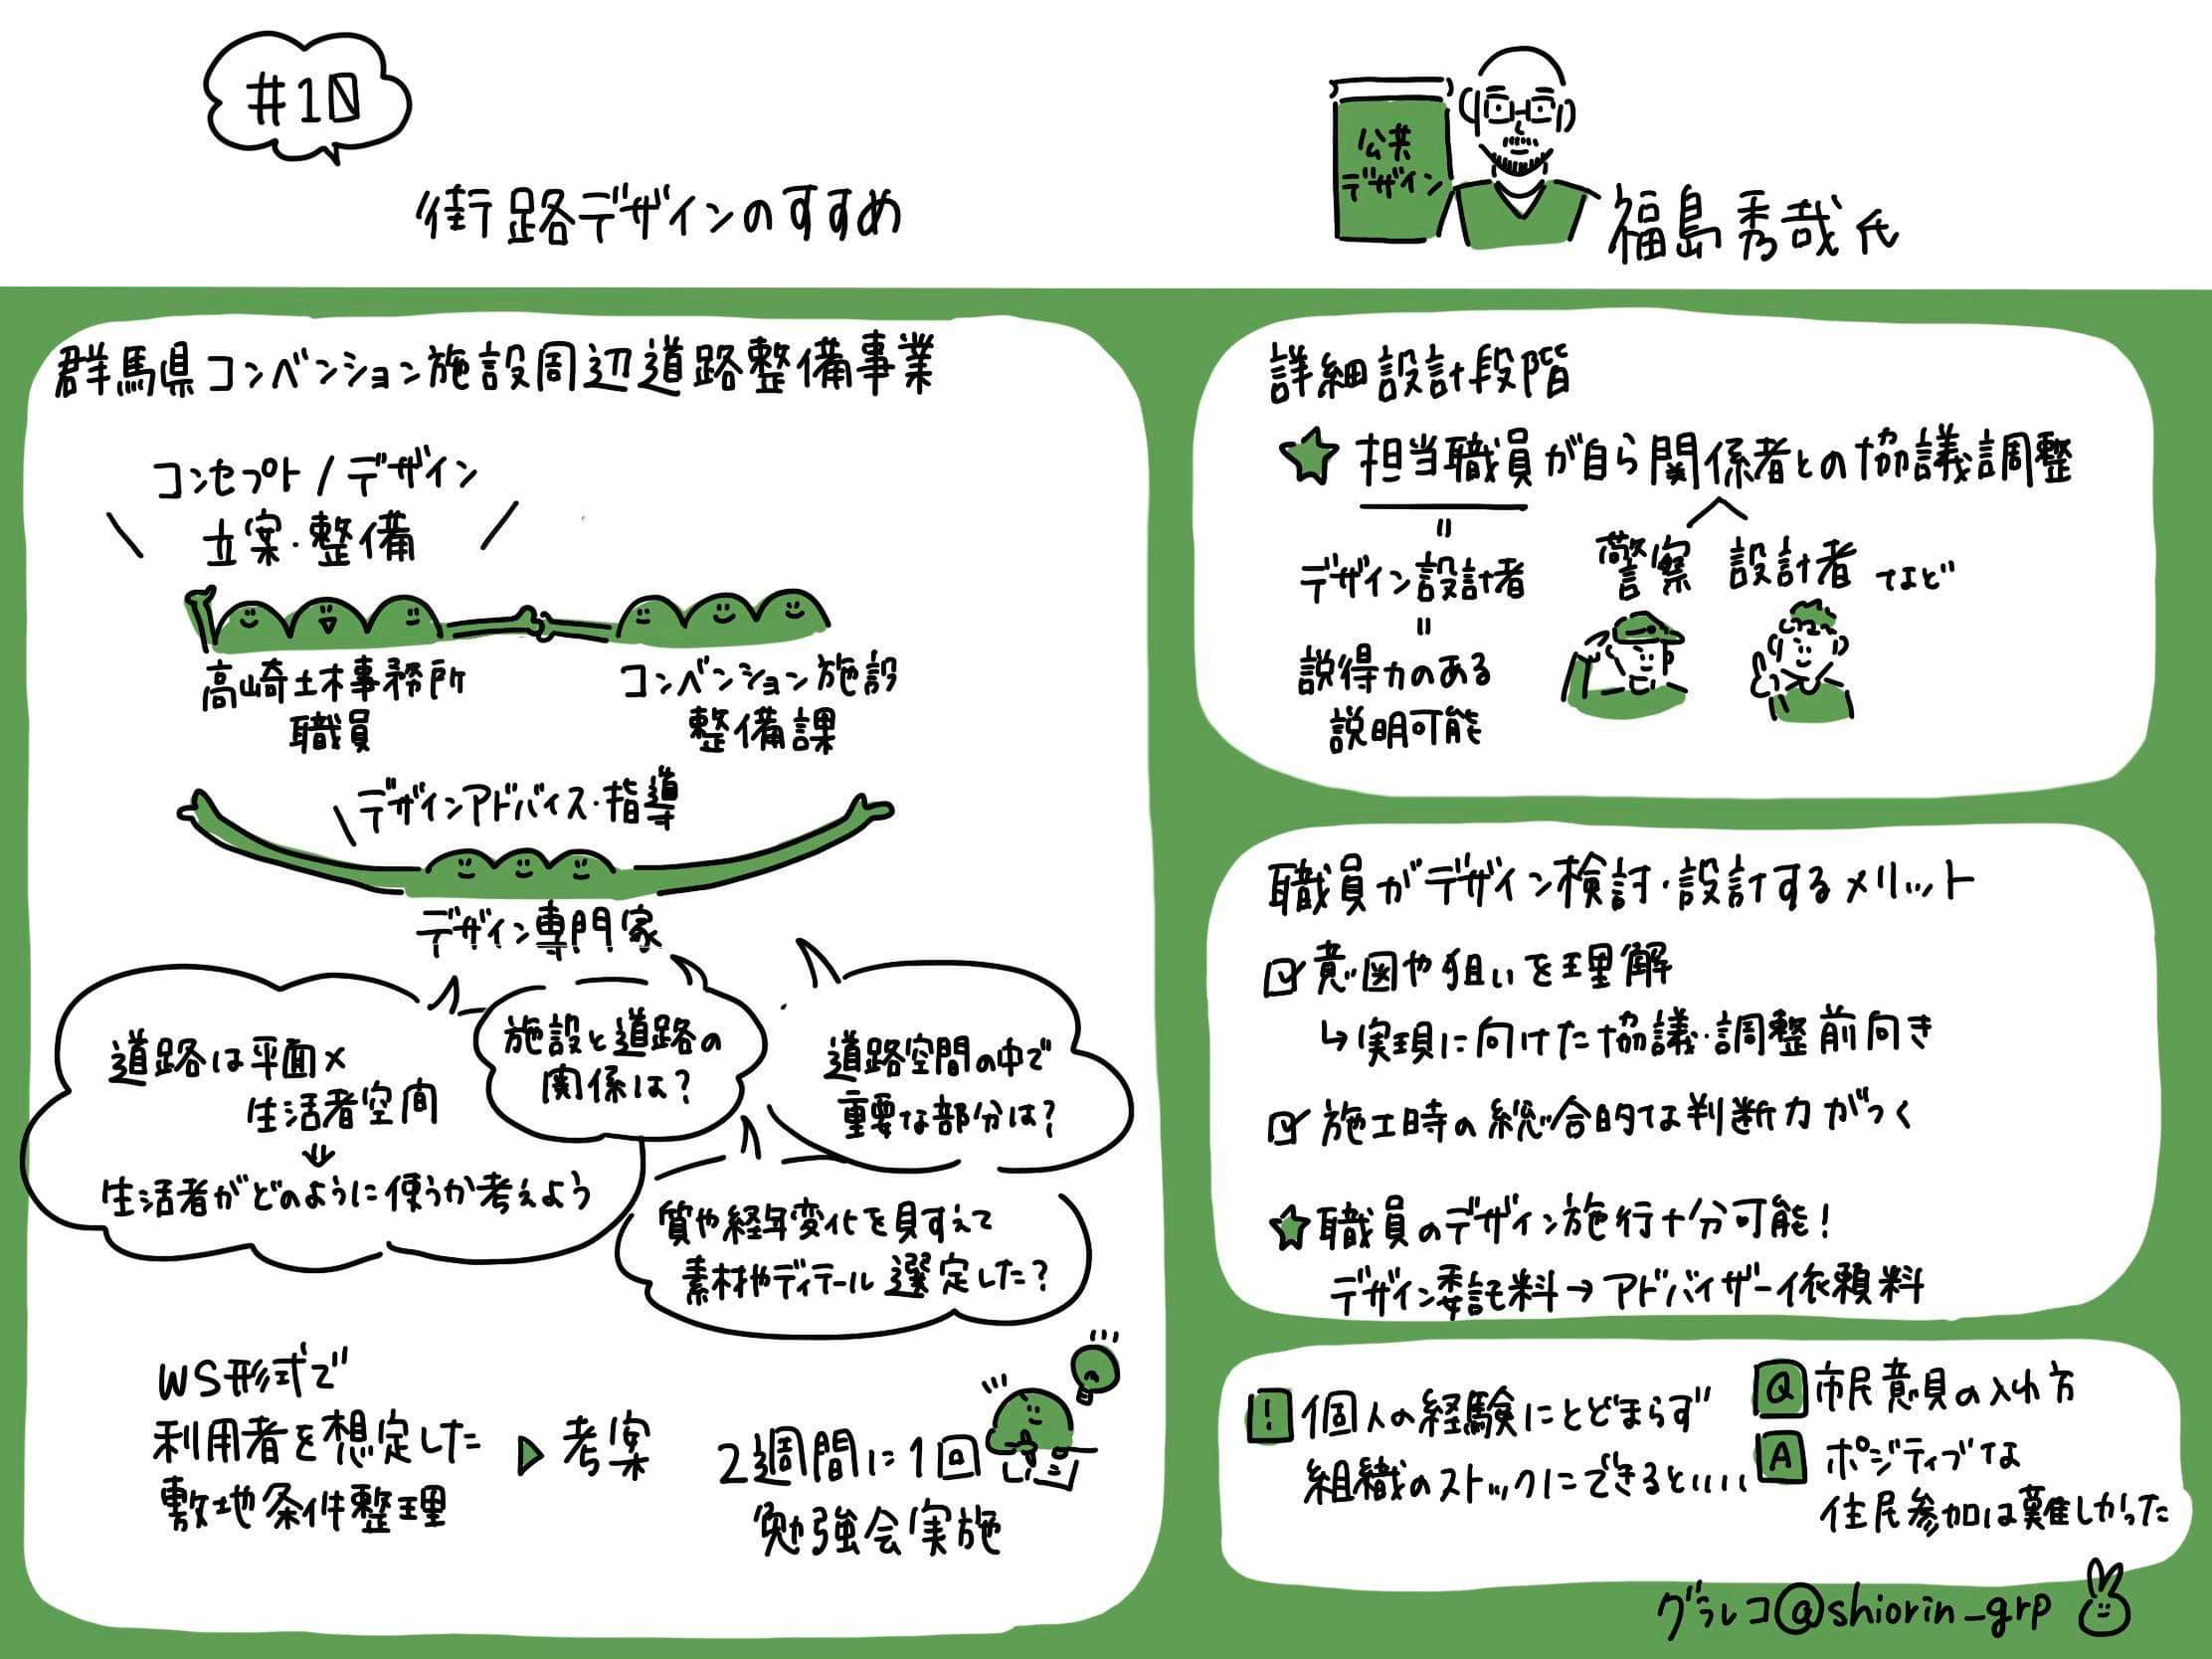 #10
街路デザインのすすめ
公共
デザイン
福島秀哉氏
群馬県コンベンション施設周辺道路整備事業
コンセプト/デザイン
立案・整備
高崎土木事務所
職員
コンベンション施設
整備課
デザインアドバイス・指導
デザイン専門家
道路は平面×
生活者空間
↓
生活者がどのように使うか考えよう
施設と道路の
関係は?
道路空間の中で
重要な部分は?
質や経年変化を見すえて
素材やディテール選定した?
WS形式で
利用者を想定した
敷地条件整理
考案
2週間に1回
勉強会実施
詳細設計段階
☆担当職員が自ら関係者との協議調整
=
デザイン設計者
=
説得力のある
説明可能
警察 設計者 など
職員がデザイン検討・設計するメリット
☑意図や狙いを理解
↳実現に向けた協議・調整前向き
☑施工時の総合的な判断力がつく
☆職員のデザイン施行十分可能!
デザイン委託料→アドバイザー依頼料
! 個人の経験にとどまらず
組織のストックにできるといい
Q 市民意見の入れ方
A ポジティブな
住民参加は難しかった
グラレコ@shiorin_grp